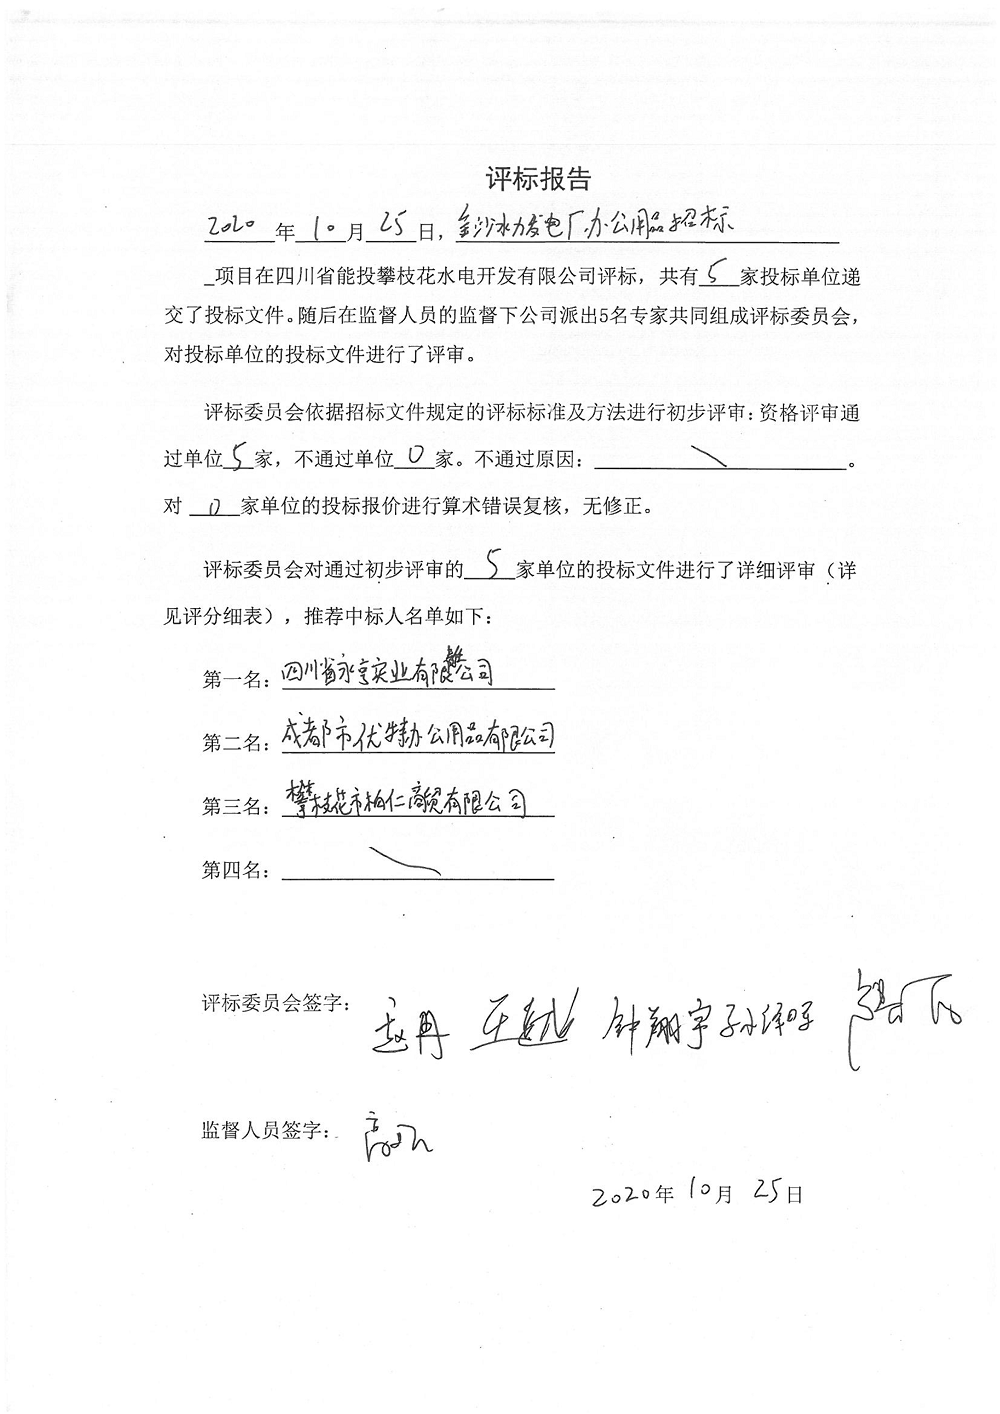 评标报告
2020年10月25日，金沙水力发电厂办公用品招标
项目在四川省能投攀枝花水电开发有限公司评标，共有5家投标单位递
交了投标文件。随后在监督人员的监督下公司派出5名专家共同组成评标委员会，
对投标单位的投标文件进行了评审。
评标委员会依据招标文件规定的评标标准及方法进行初步评审：资格评审通
过单位5家，不通过单位0家。不通过原因：＼。
对0家单位的投标报价进行算术错误复核，无修正。
评标委员会对通过初步评审的5家单位的投标文件进行了详细评审（详
见评分细表），推荐中标人名单如下：
第一名：四川省永亨实业有限公司
第二名：成都市优特办公用品有限公司
第三名：攀枝花市柏仁商贸有限公司
第四名：＼
评标委员会签字：赵冉 钟翔宇
监督人员签字：
2020年10月25日